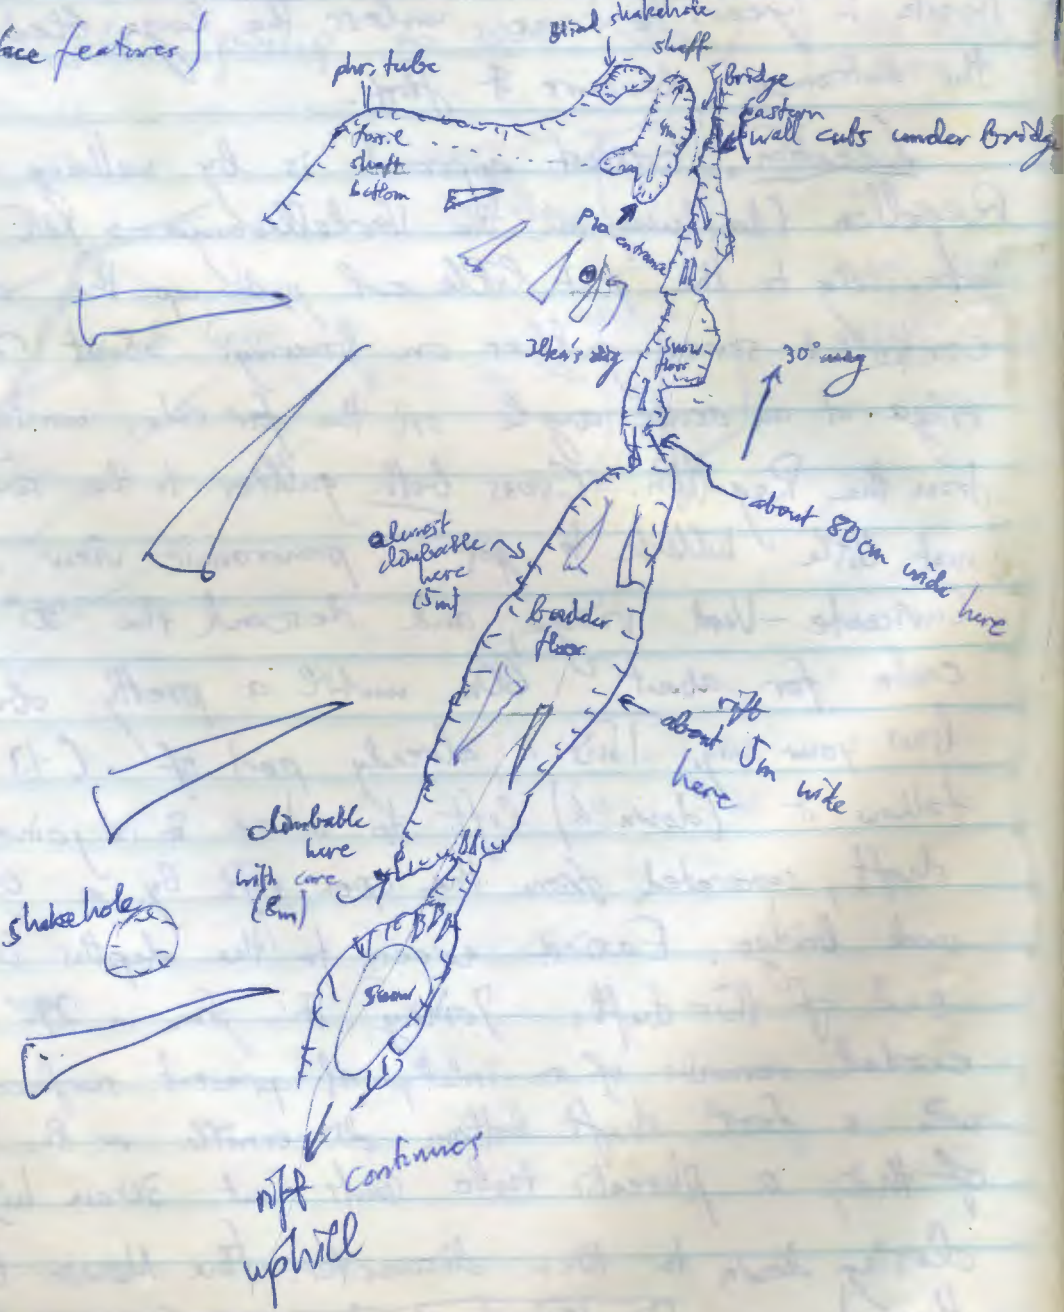 face features)
Blind shakehole
shaft
phr. tube
Bridge
Eastern
wall cuts under Bridge
fossil
shaft
bottom
5m
P10 entrance
Ilka's dig
snow
floor
30° mag
about 80cm wide here
almost
climbable
here
(5m)
boulder
floor
rift
about 5m wide
here
climbable
here
with care
(8m)
shakehole
snow
rift continues
uphill